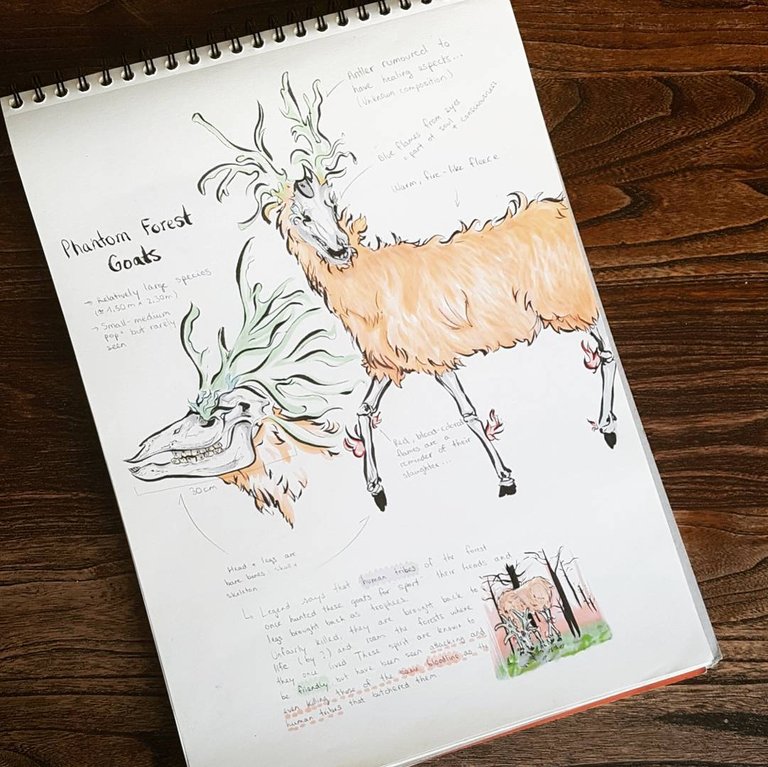 Antler rumoured to
have healing aspects...
(Unknown composition)
Blue flames from eyes
= part of soul + consciousness
Warm, fire-like fleece
Phantom Forest
Goats
→ Relatively large species
(± 1.50m x 2.30m)
→ Small-medium
pop° but rarely
seen
Red, blood-colored
flames are a
reminder of their
slaughter...
30cm
Head + legs are
bare bones: skull +
skeleton
↳ Legend says that human tribes of the forest
once hunted these goats for sport. Their heads and
legs brought back as trophies.
Unfairly killed, they are brought back to
life (by ?) and roam the forests where
they once lived. These spirits are known to
be friendly but have been seen attacking and
even killing those of the same bloodline as the
human tribes that butchered them